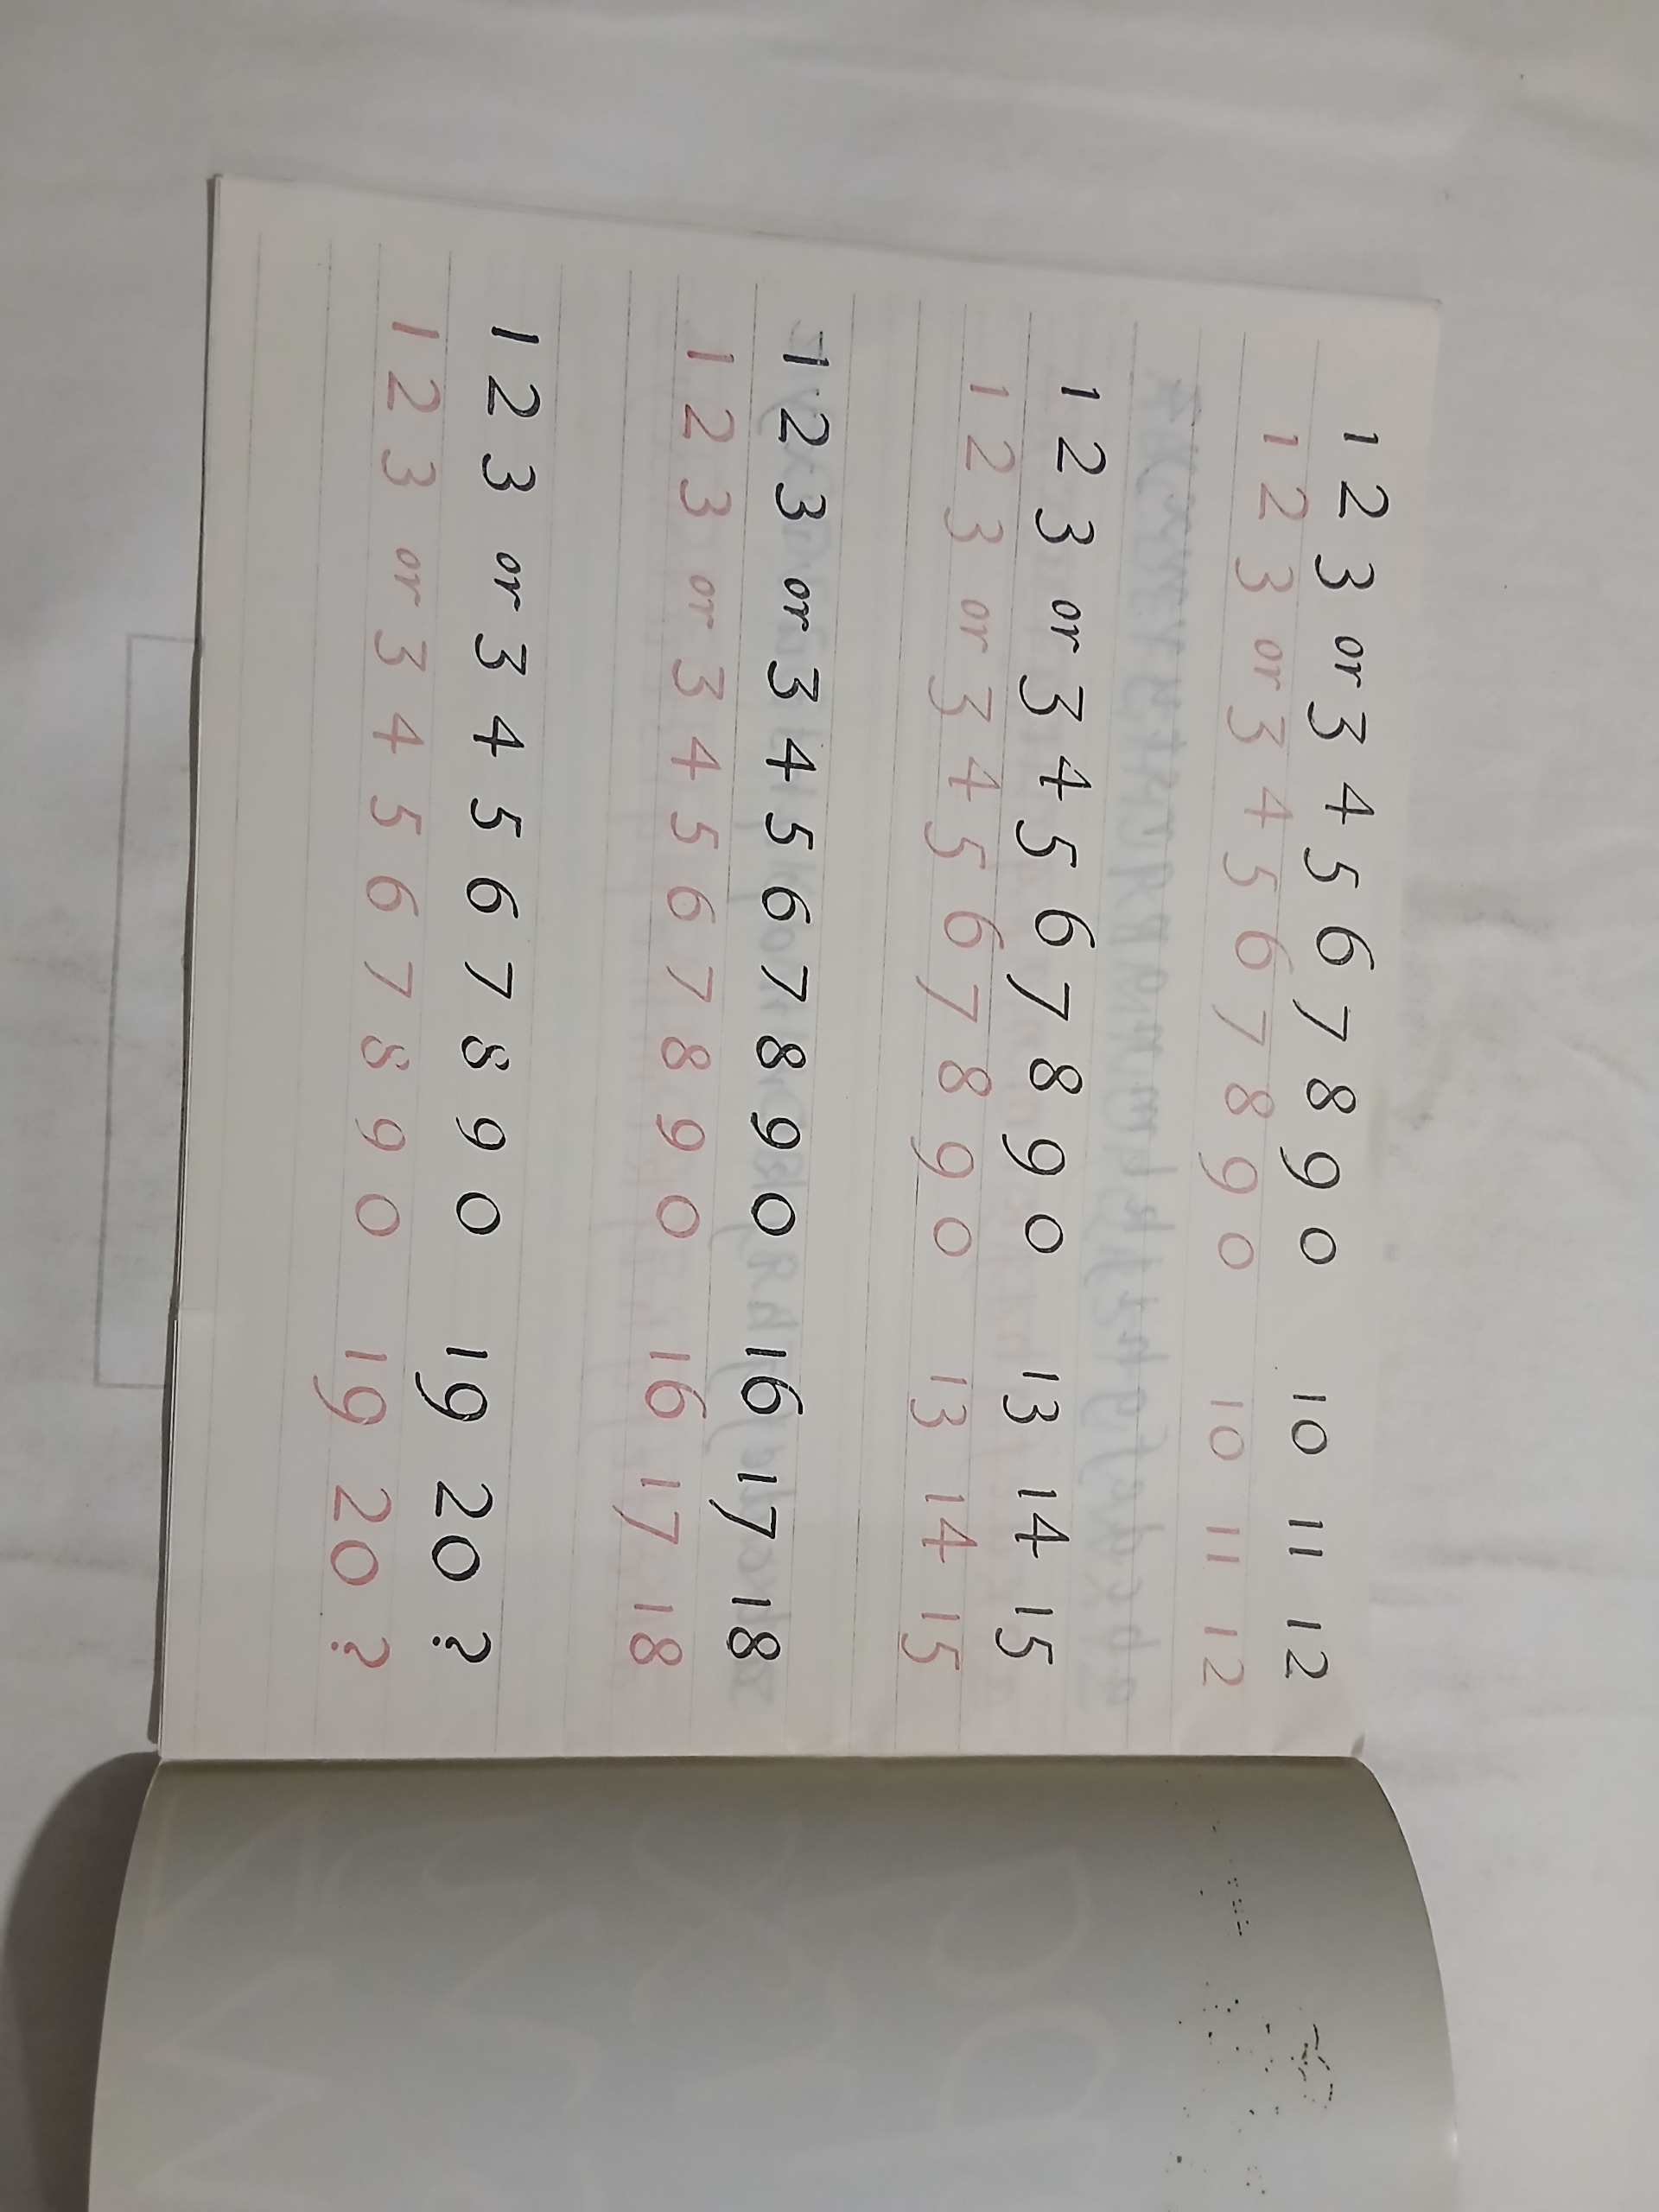 1 2 3 or 3 4 5 6 7 8 9 0 10 11 12
1 2 3 or 3 4 5 6 7 8 9 0 10 11 12
1 2 3 or 3 4 5 6 7 8 9 0 13 14 15
1 2 3 or 3 4 5 6 7 8 9 0 13 14 15
1 2 3 or 3 4 5 6 7 8 9 0 16 17 18
1 2 3 or 3 4 5 6 7 8 9 0 16 17 18
1 2 3 or 3 4 5 6 7 8 9 0 19 20 ?
1 2 3 or 3 4 5 6 7 8 9 0 19 20 ?